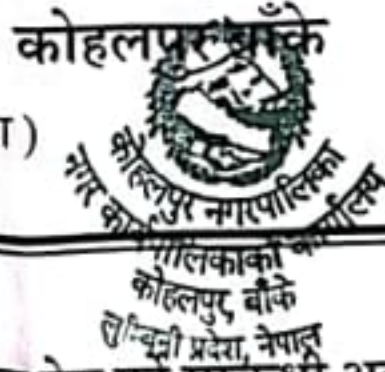 कोहलपुर बाँके
ा)
कोहलपुर नगरपालिका
नगर कार्यपालिकाको कार्यालय
कोहलपुर, बाँके
लुम्बिनी प्रदेश, नेपाल